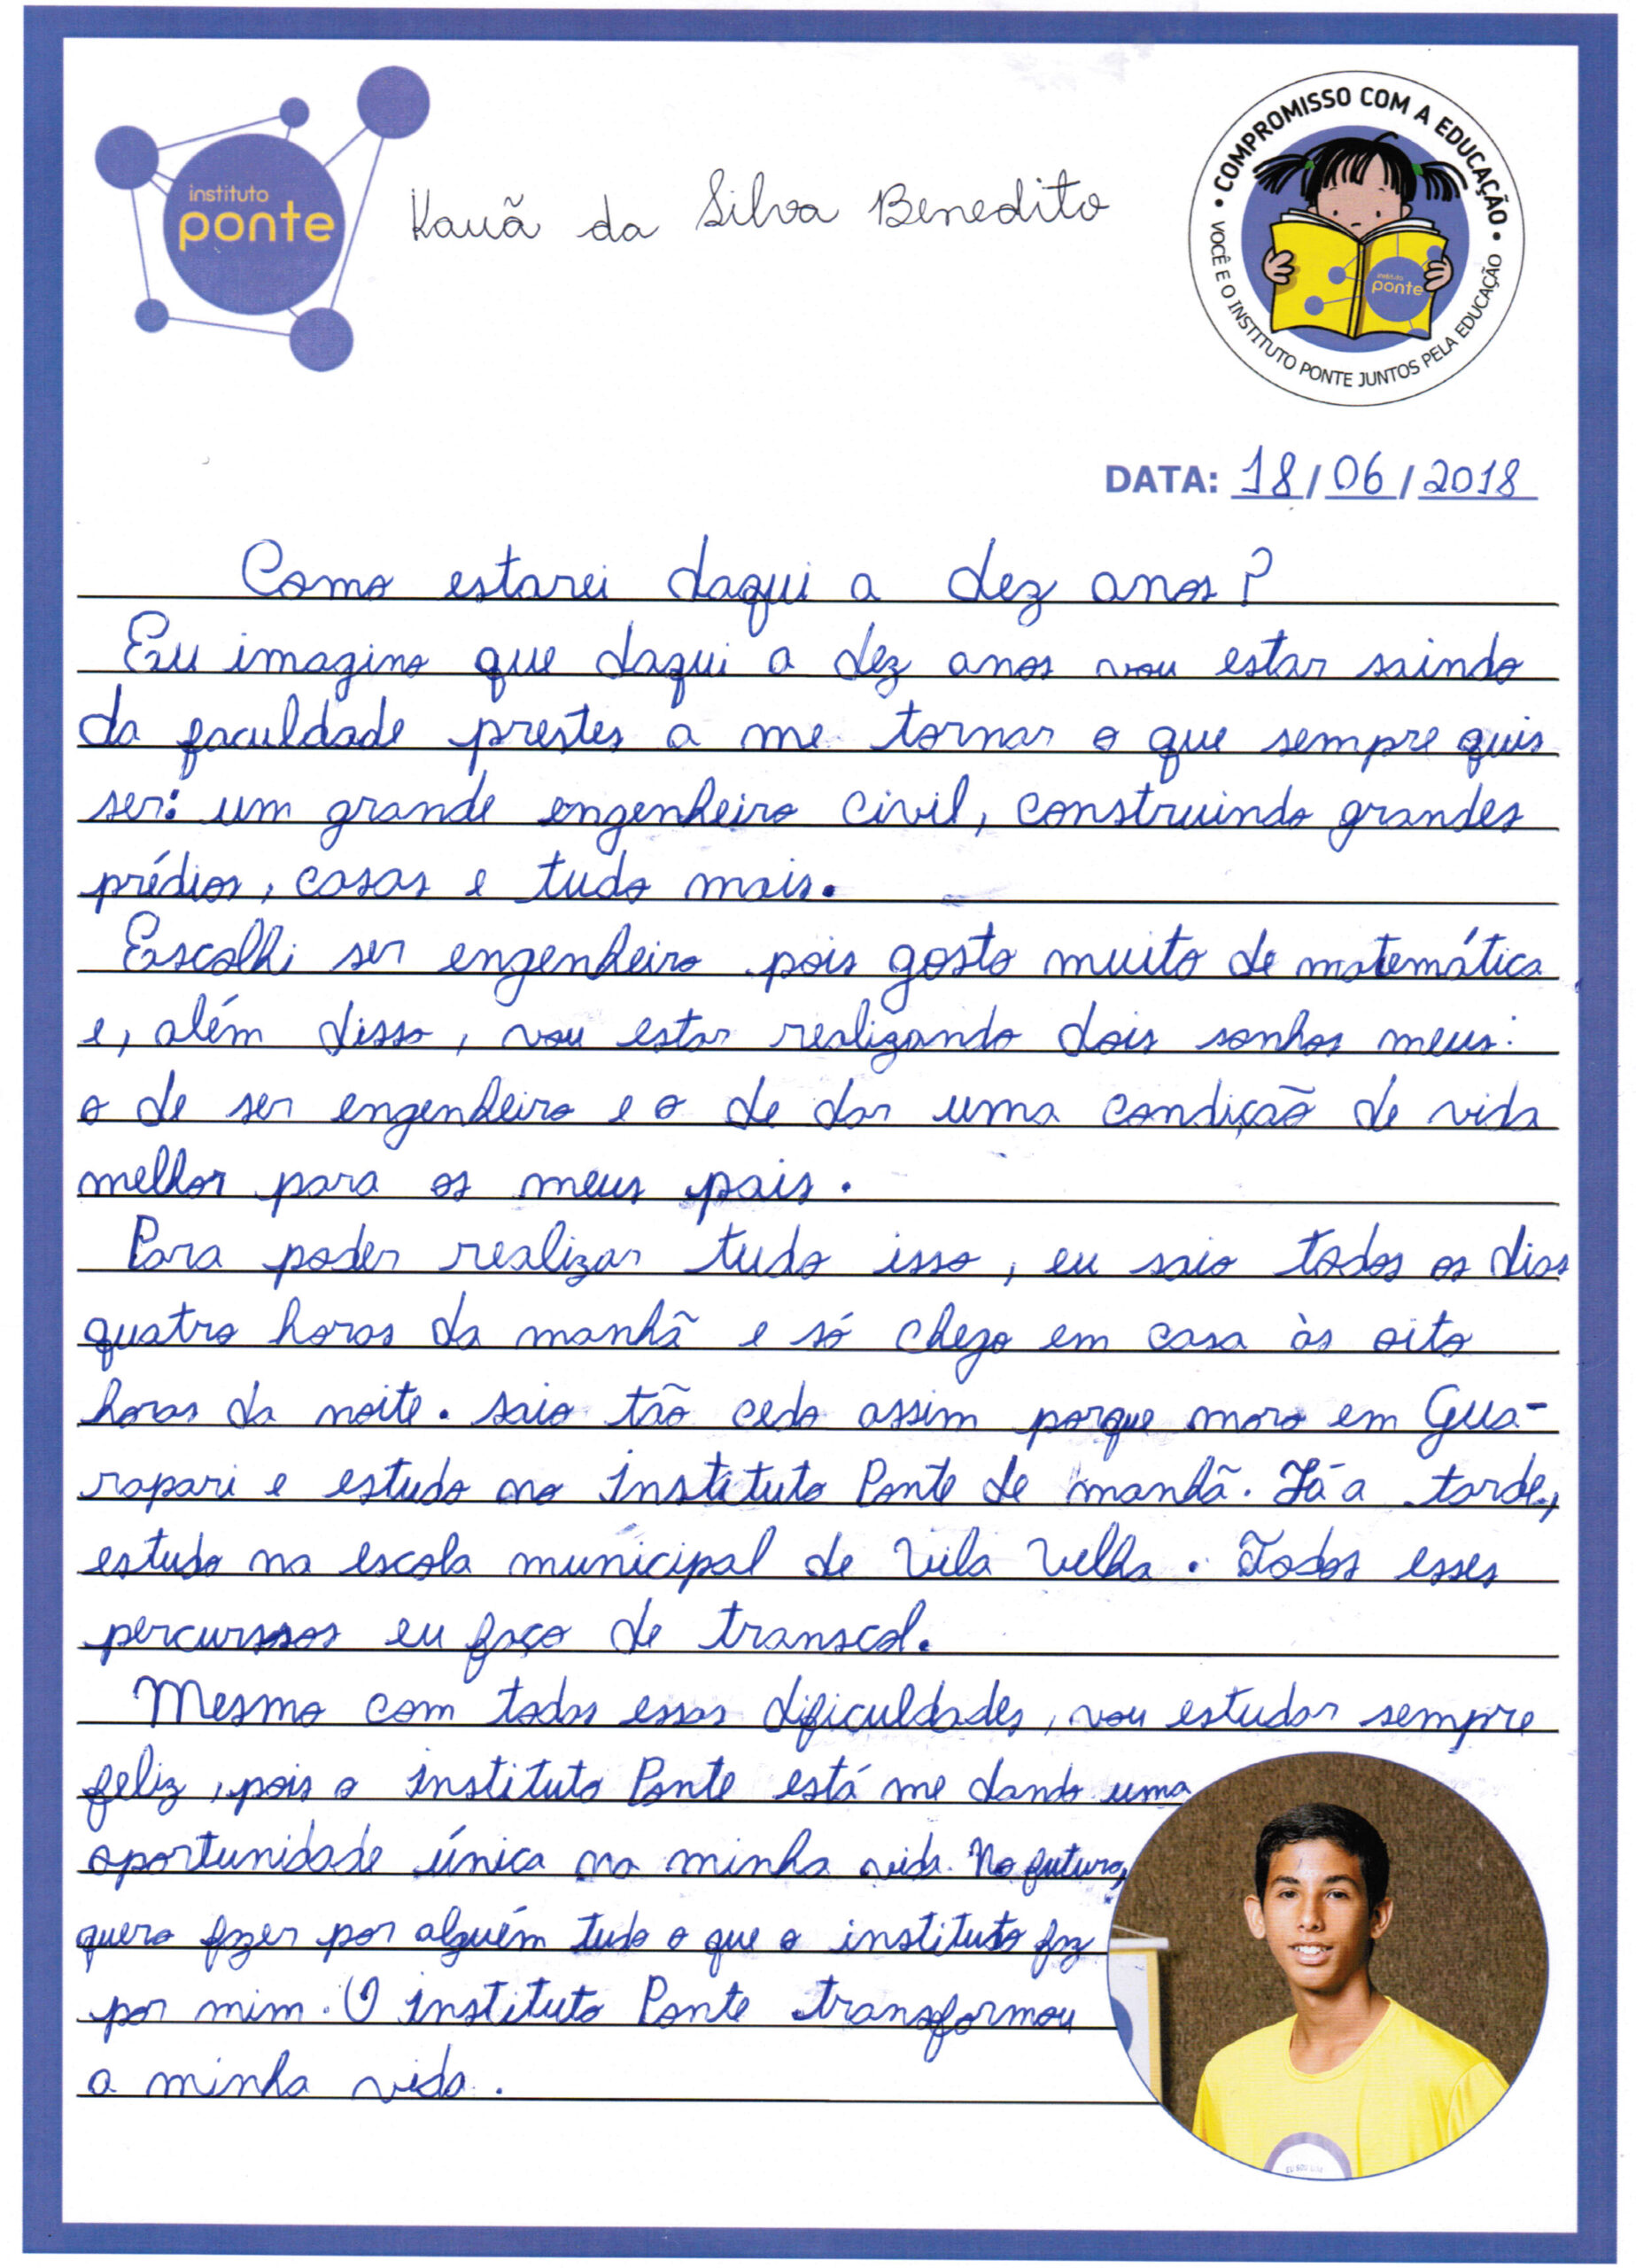 instituto
ponte
Kauã da Silva Benedito
• COMPROMISSO COM A EDUCAÇÃO •
VOCÊ E O INSTITUTO PONTE JUNTOS PELA EDUCAÇÃO
instituto
ponte
DATA: 18/06/2018
Como estarei daqui a dez anos?
Eu imagino que daqui a dez anos vou estar saindo
da faculdade prestes a me tornar o que sempre quis
ser: um grande engenheiro civil, construindo grandes
prédios, casas e tudo mais.
Escolhi ser engenheiro pois gosto muito de matemática
e, além disso, vou estar realizando dois sonhos meus:
o de ser engenheiro e o de dar uma condição de vida
melhor para os meus pais.
Para poder realizar tudo isso, eu saio todos os dias
quatro horas da manhã e só chego em casa às oito
horas da noite. saio tão cedo assim porque moro em Gua-
rapari e estudo no instituto Ponte de manhã. Já a tarde,
estudo na escola municipal de Vila Velha. Todos esses
percurssos eu faço de transcol.
Mesmo com todas essas dificuldades, vou estudar sempre
feliz, pois o instituto Ponte está me dando uma
oportunidade única na minha vida. No futuro,
quero fazer por alguém tudo o que o instituto faz
por mim. O instituto Ponte transformou
a minha vida.